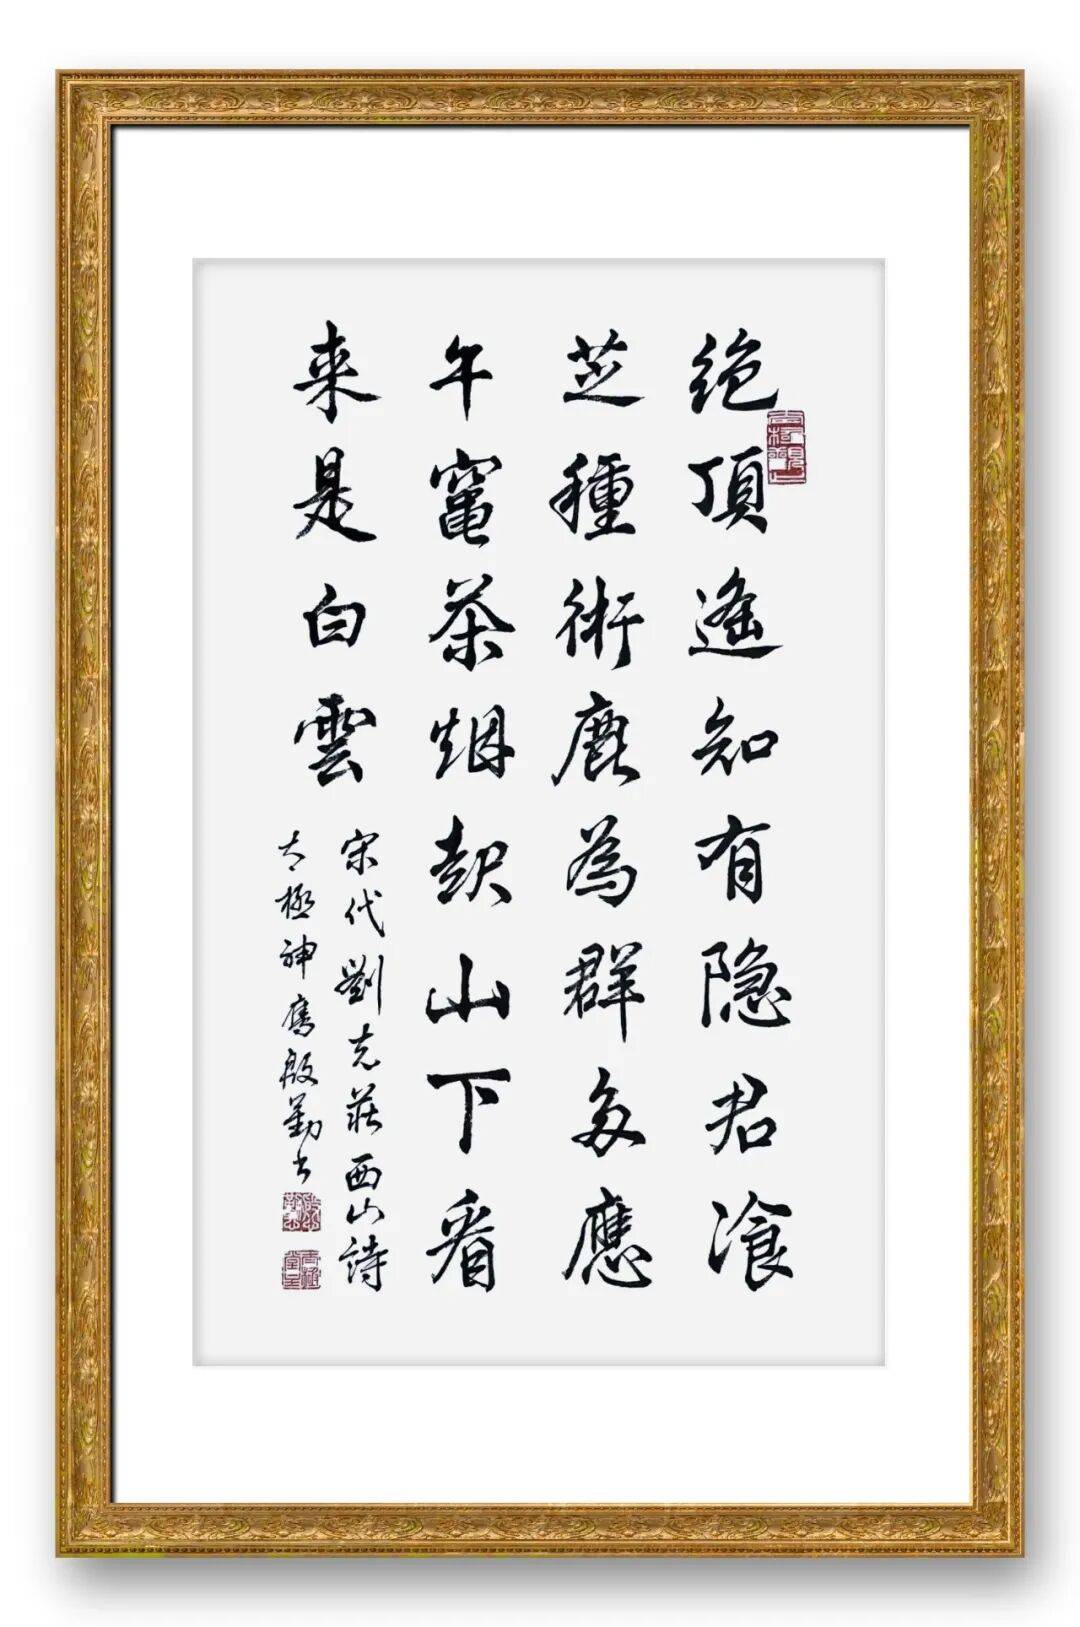 绝頂遙知有隐君飡
芝種術鹿為群多應
午竈茶烟起山下看
来是白雲
宋代劉克莊西山詩
太極神鷹殷勤书